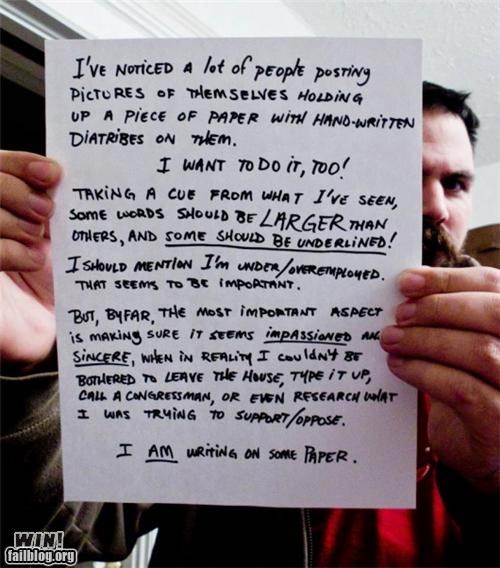 I'VE NOTICED A lot of PEOPLE POSTING
PICTURES OF THEMSELVES HOLDING
UP A PIECE OF PAPER WITH HAND-WRITTEN
DIATRIBES ON THEM.
I WANT TO DO IT, TOO!
TAKING A CUE FROM WHAT I'VE SEEN,
SOME WORDS SHOULD BE LARGER THAN
OTHERS, AND SOME SHOULD BE UNDERLINED!
I SHOULD MENTION I'M UNDER/OVEREMPLOYED.
THAT SEEMS TO BE IMPORTANT.
BUT, BY FAR, THE MOST IMPORTANT ASPECT
IS MAKING SURE IT SEEMS IMPASSIONED AND
SINCERE, WHEN IN REALITY I COULDN'T BE
BOTHERED TO LEAVE THE HOUSE, TYPE IT UP,
CALL A CONGRESSMAN, OR EVEN RESEARCH WHAT
I WAS TRYING TO SUPPORT/OPPOSE.
I AM WRITING ON SOME PAPER.
WIN!
failblog.org